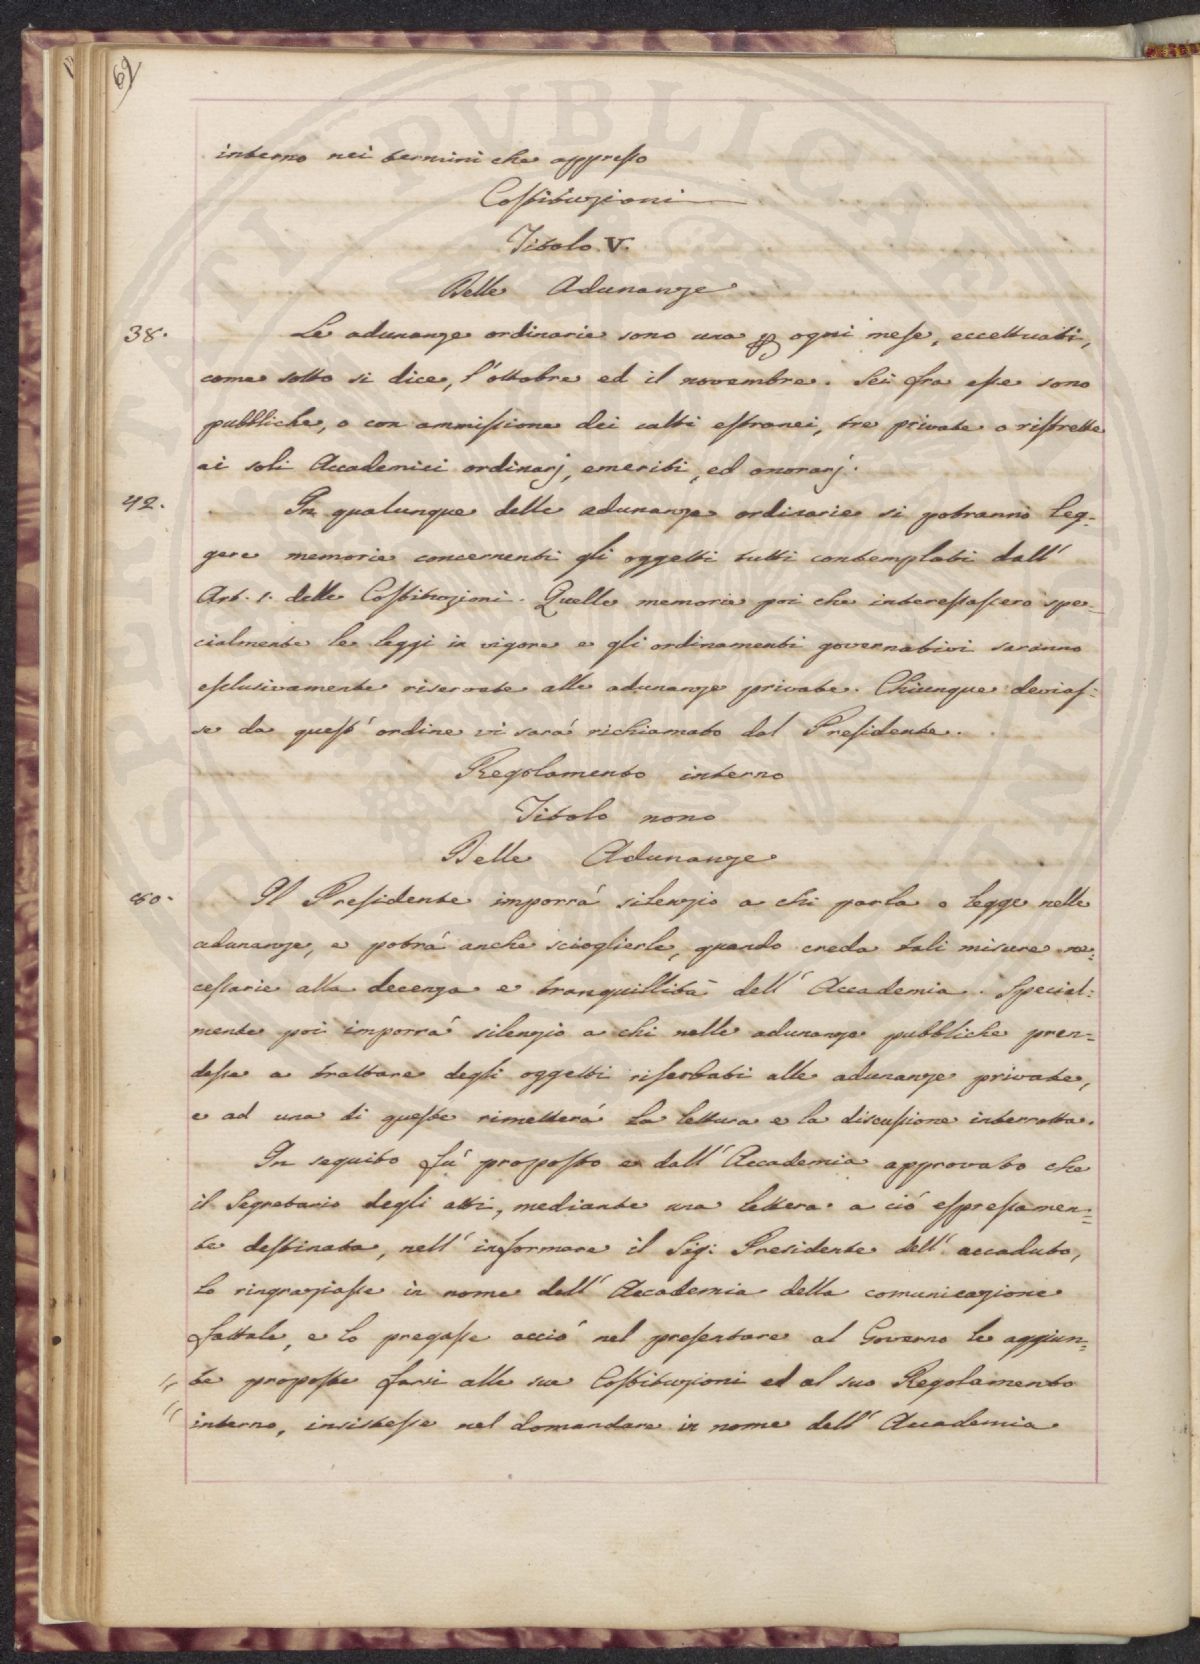 62
interno nei termini che appresso
Costituzioni
Titolo V.
Delle Adunanze
38. Le adunanze ordinarie sono una per ogni mese, eccettuati,
come sotto si dice, l'ottobre ed il novembre. Sei fra esse sono
pubbliche, o con ammissione dei culti estranei, tre private o ristrette
ai soli Accademici ordinarj, emeriti, ed onorarj.
42. In qualunque delle adunanze ordinarie si potranno leg-
gere memorie concernenti gli oggetti tutti contemplati dall'
Art. 1. delle Costituzioni. Quelle memorie poi che interessassero spe-
cialmente le leggi in vigore e gli ordinamenti governativi saranno
esclusivamente riservate alle adunanze private. Chiunque devias-
se da quest'ordine vi sará richiamato dal Presidente.
Regolamento interno
Titolo nono
Delle Adunanze
80. Il Presidente imporrá silenzio a chi parla o legge nelle
adunanze, e potrá anche scioglierle, quando creda tali misure ne-
cessarie alla decenza e tranquillitá dell'Accademia. Special-
mente poi imporrá silenzio a chi nelle adunanze pubbliche pren-
desse a trattare degli oggetti riserbati alle adunanze private,
e ad una di queste rimetterá la lettura e la discussione interrotta.
In seguito fú proposto e dall'Accademia approvato che
il Segretario degli atti, mediante una lettera a ció espressamen-
te destinata, nell'informare il Sig: Presidente dell'accaduto,
lo ringraziasse in nome dell'Accademia della comunicazione
fattale, e lo pregasse acció nel presentare al Governo le aggiun-
te proposte farsi alle sue Costituzioni ed al suo Regolamento
interno, insistesse nel domandare in nome dell'Accademia